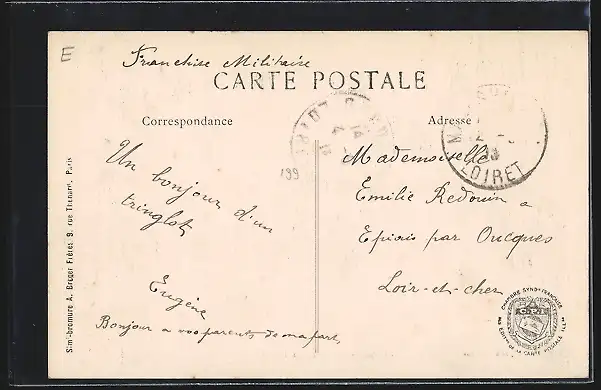 E
Franchise Militaire
CARTE POSTALE
Correspondance
Adresse
LOIRET
199
Un bonjour d'un
tringlot
Eugène
Bonjour a vos parents de ma part
Mademoiselle
Emilie Redouin a
Epiais par Oucques
Loir-et-cher
Simi-bromure A. Breger Frères 9, rue Thénard, Paris
LOIRET
CHAMBRE SYND. FRANÇAISE
DE LA CARTE POSTALE ILL.